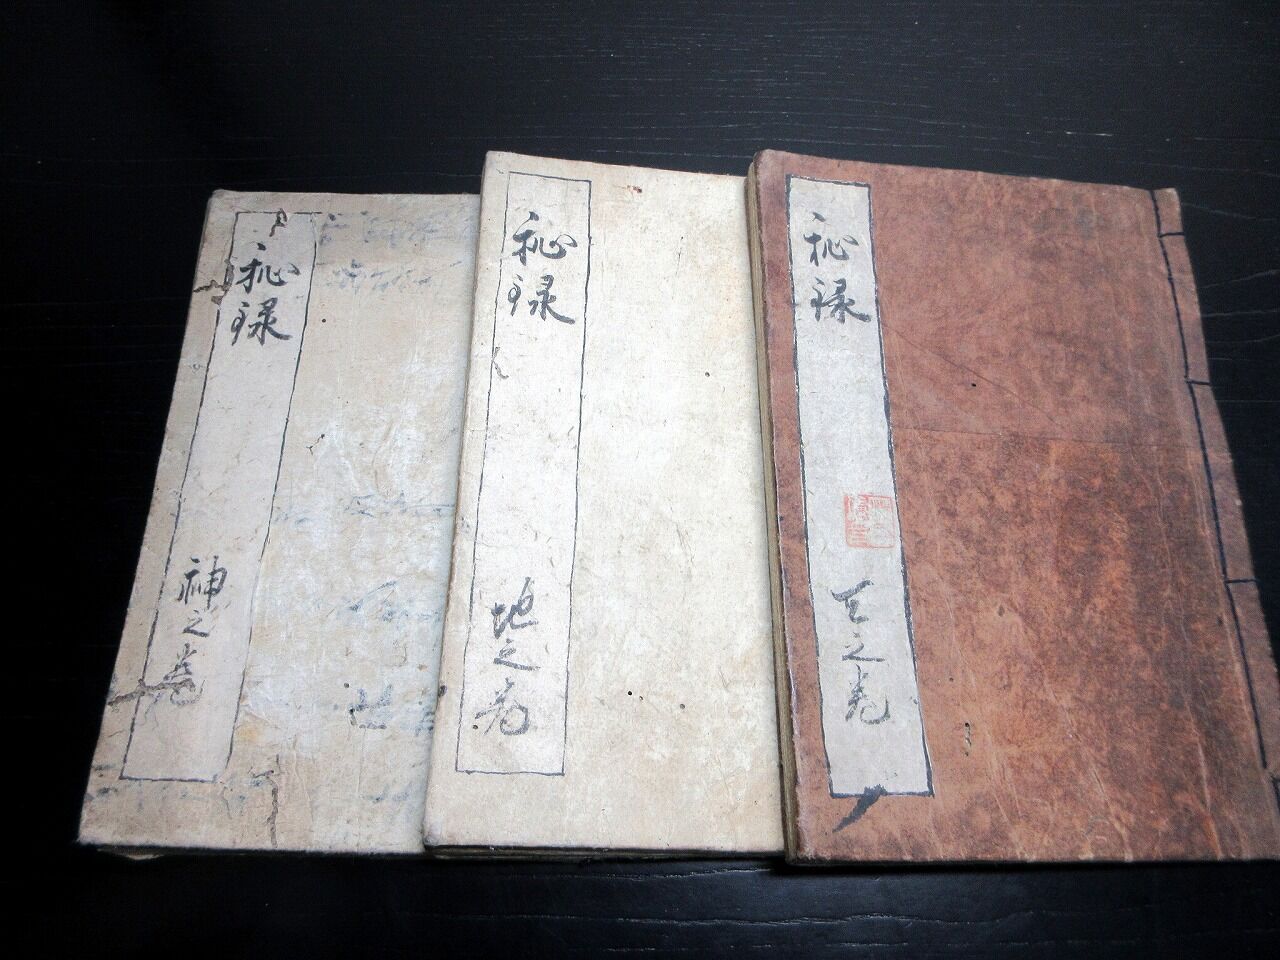 秘録
天之巻
秘録
地之巻
秘録
神之巻